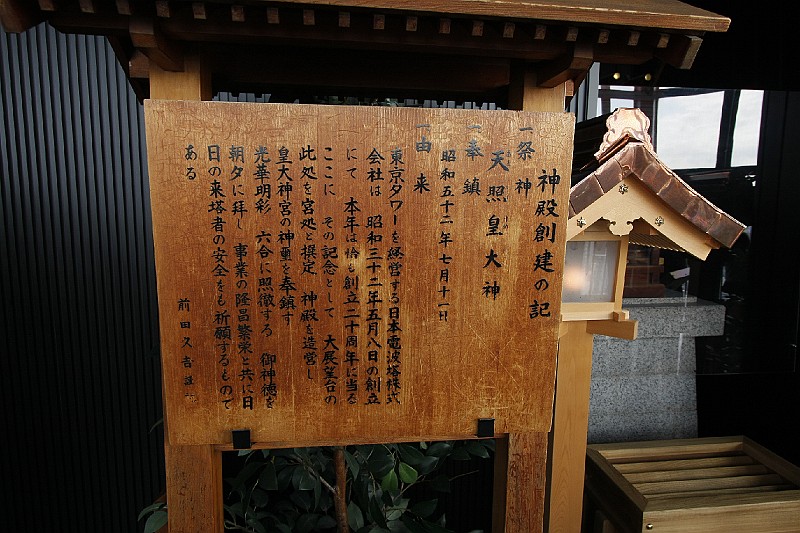 神殿創建の記
一祭神
天照皇大神
一奉鎮
昭和五十二年七月十一日
一由来
東京タワーを経営する日本電波塔株式
会社は 昭和三十二年五月八日の創立
にて 本年は恰も創立二十周年に当る
ここに その記念として 大展望台の
此処を宮処と撰定 神殿を造営し
皇大神宮の神璽を奉鎮す
光華明彩 六合に照徹する 御神徳を
朝夕に拝し 事業の隆昌繁栄と共に日
日の来塔者の安全をも祈願するもので
ある
前田久吉